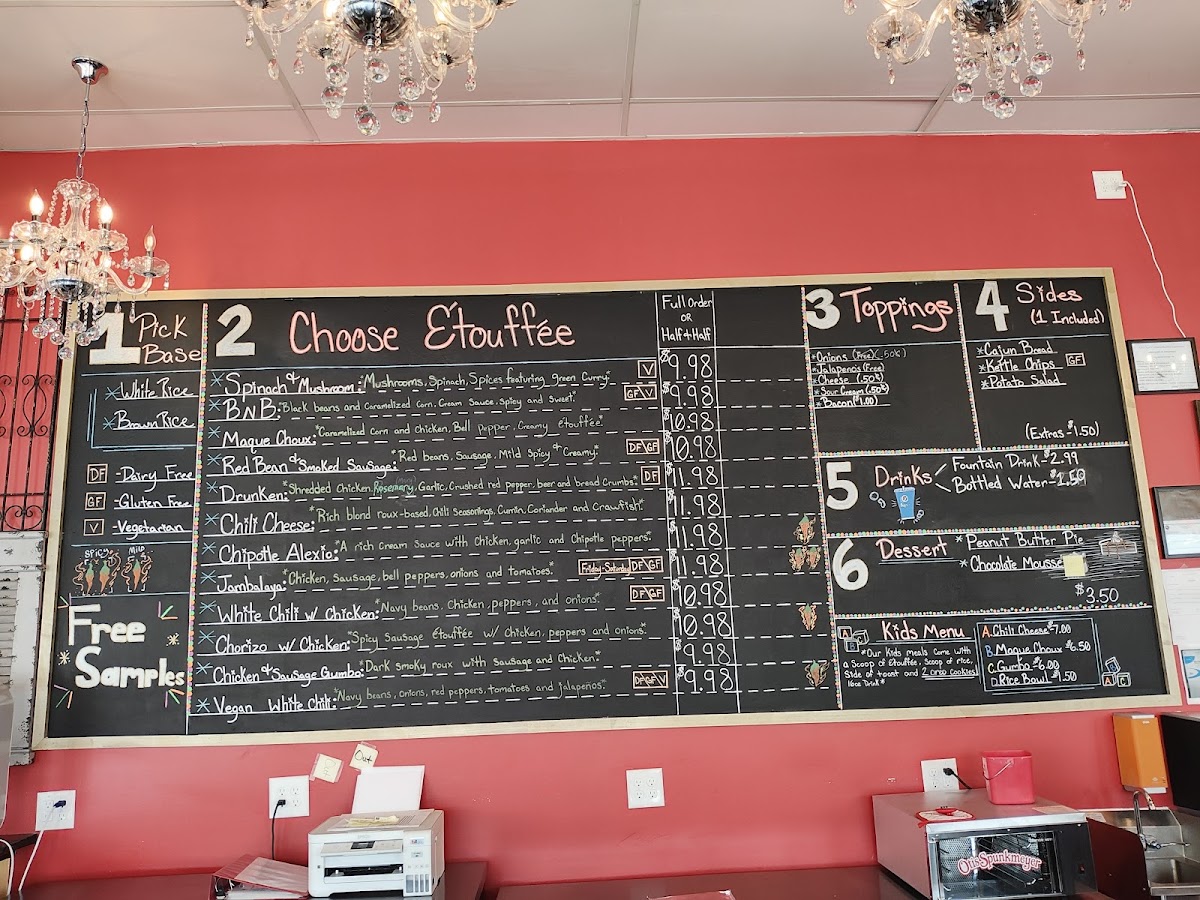 1 Pick
Base
*White Rice
*Brown Rice
DF -Dairy Free
GF -Gluten Free
V -Vegetarian
Spicy Mild
Free
Samples
2 Choose Étouffée
Full Order
OR
Half+Half
*Spinach & Mushroom: "Mushrooms, Spinach, Spices featuring green Curry" V $9.98
*BNB: "Black beans and Caramelized corn, Cream Sauce, spicy and sweet" GF\V $9.98
Maque Choux: "Caramelized Corn and Chicken, Bell pepper, Creamy étouffée." 10.98
*Red Bean & Smoked Sausage: "Red beans, Sausage, Mild Spicy & Creamy" DF\GF $10.98
*Drunken: "Shredded Chicken, Rosemary, Garlic, Crushed red pepper, beer and bread Crumbs" DF $11.98
*Chili Cheese: "Rich blond roux-based, Chili Seasonings, Cumin, Coriander and Crawfish." $11.98
*Chipotle Alexio: "A rich Cream Sauce with Chicken, garlic and Chipotle peppers" $11.98
*Jambalaya: "Chicken, Sausage, bell peppers, onions and tomatoes." Friday-Saturday DF\GF $11.98
*White Chili w/ Chicken: "Navy beans, Chicken, peppers, and onions" DF\GF $10.98
*Chorizo w/ Chicken: "Spicy Sausage étouffée w/ Chicken, peppers and onions" $10.98
*Chicken & Sausage Gumbo: "Dark smoky roux with Sausage and Chicken." $9.98
*Vegan White Chili: "Navy beans, onions, red peppers, tomatoes and jalapeños." DF\GF\V $9.98
3 Toppings
*Onions (Free) (.50¢)
*Jalapeños (Free)
*Cheese (.50¢)
*Sour Cream (.50¢)
*Bacon ($1.00)
4 Sides
(1 Included)
*Cajun Bread
*Kettle Chips GF
*Potato Salad
(Extras $1.50)
5 Drinks
Fountain Drink-$2.99
Bottled Water-$1.50
6 Dessert
*Peanut Butter Pie
*Chocolate Mousse
$3.50
Kids Menu
"Our Kids meals come with
a Scoop of Étouffée, Scoop of rice,
Side of toast and 2 oreo Cookies!
16oz Drink"
A. Chili Cheese $7.00
B. Maque Choux $6.50
C. Gumbo $6.00
D. Rice Bowl $1.50
Out
Otis Spunkmeyer